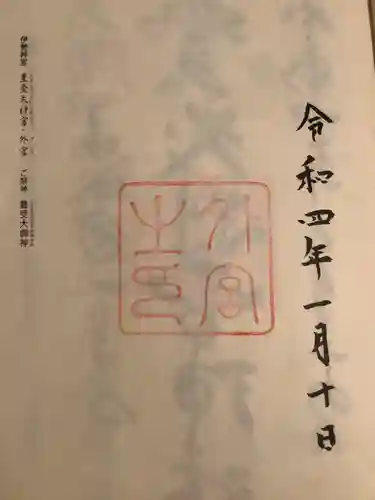 令和四年一月十日
外宮
之印
伊勢神宮 豊受大神宮・外宮 ご祭神 豊受大御神